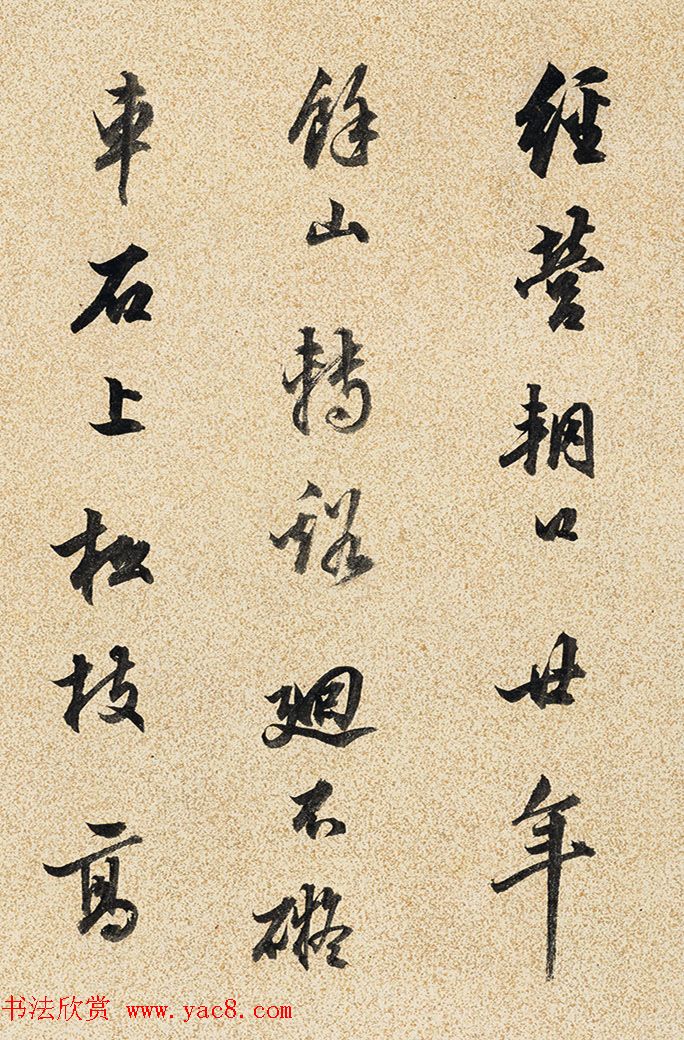 經營輞口廿年
餘山轉谿迴不礙
車石上松枝高
书法欣赏 www.yac8.com